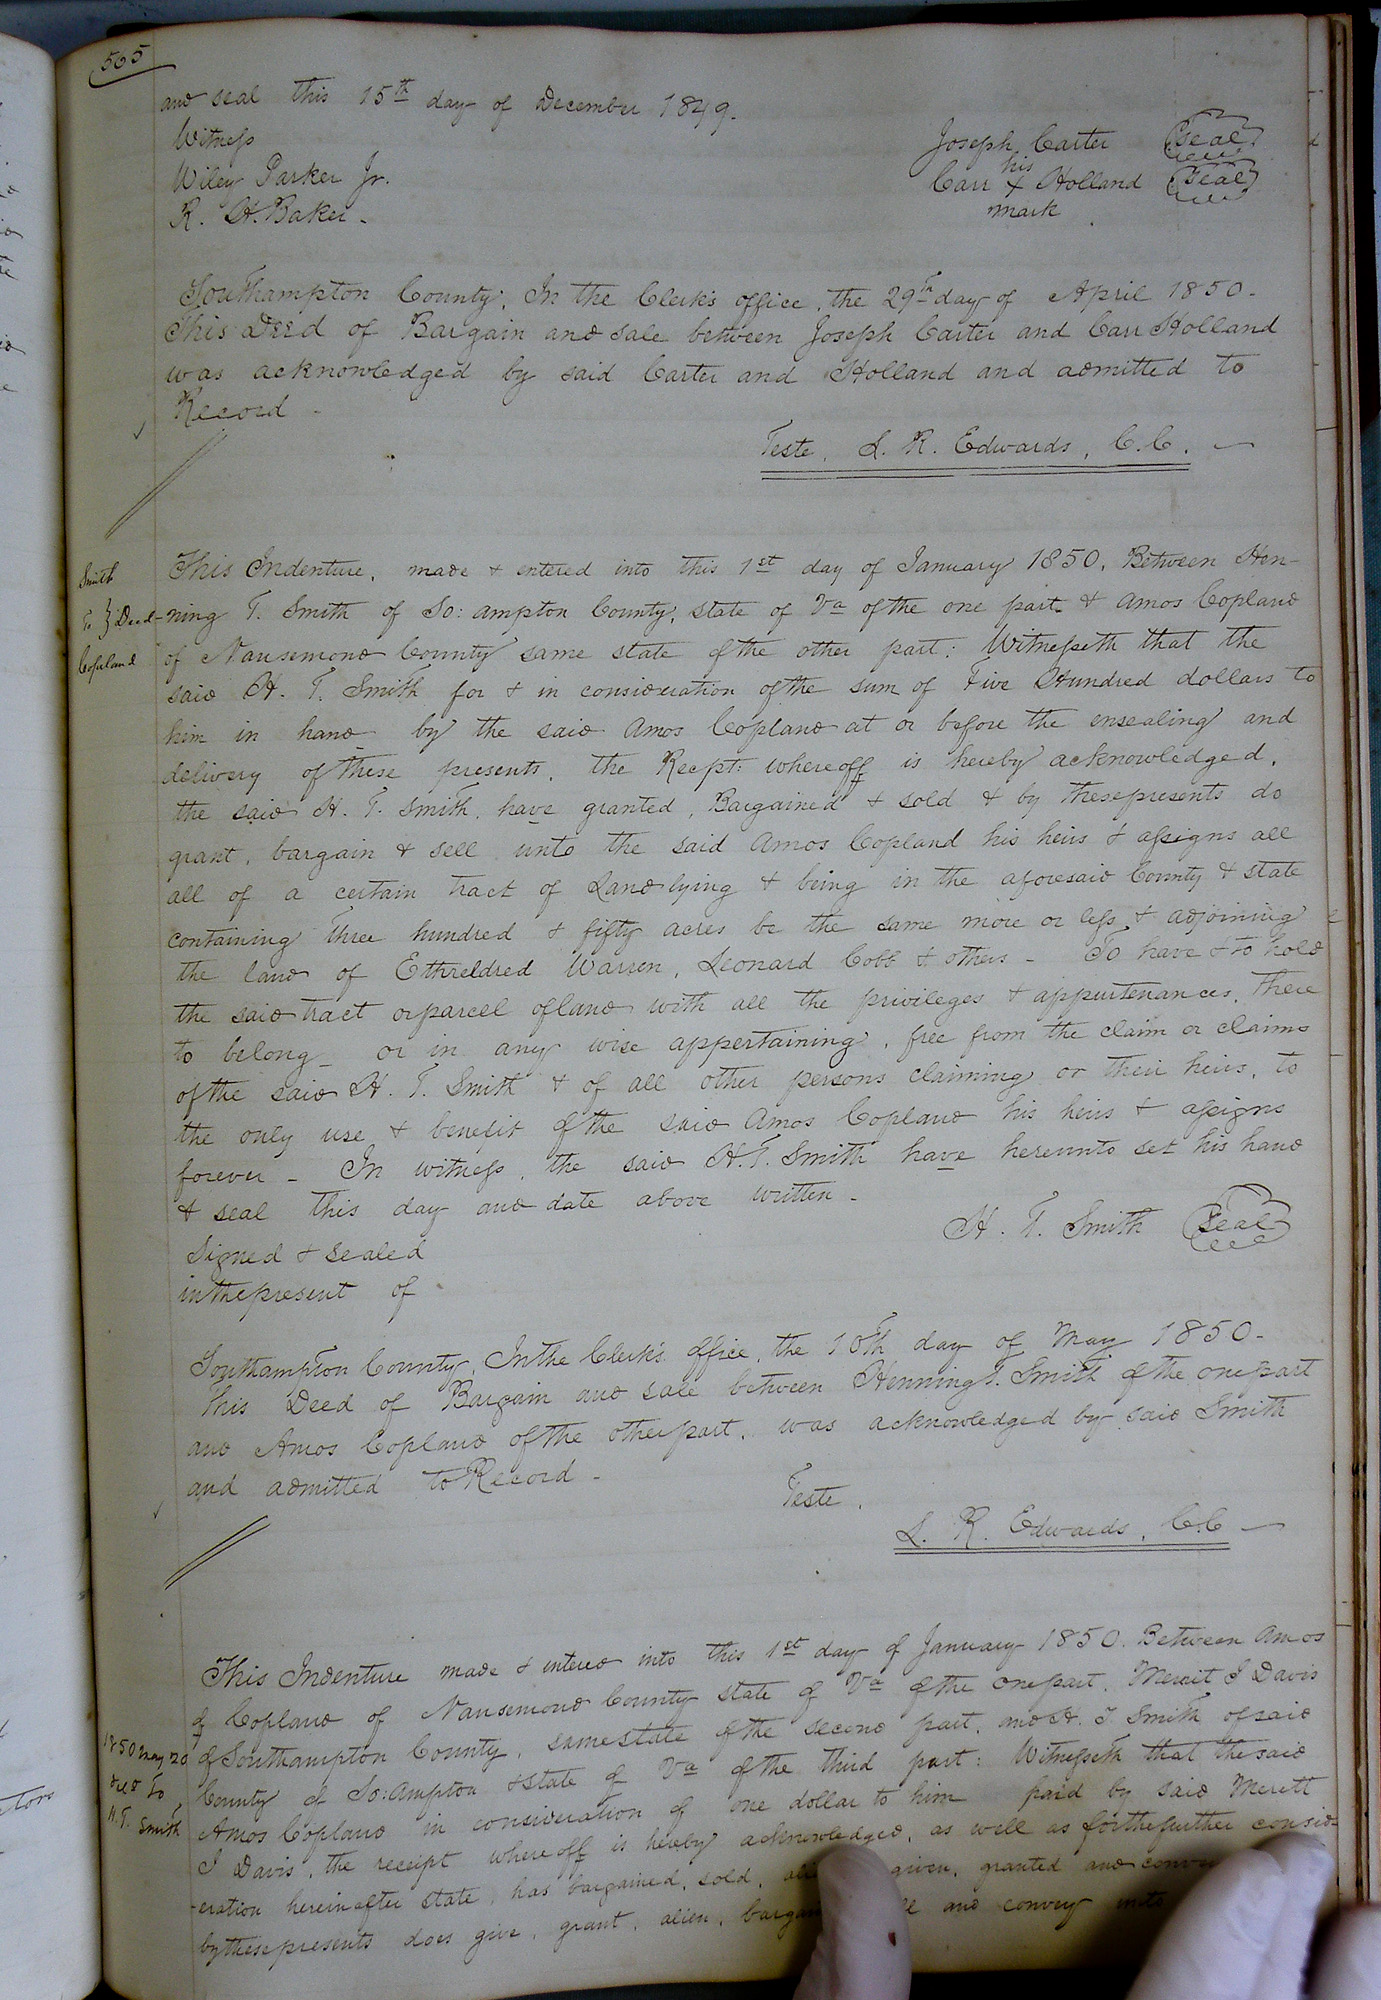 565
and seal this 15th day of December 1849.
Witness
Joseph Carter (Seal)
Wiley Parker Jr.
his
Carr x Holland (Seal)
R. H. Baker.
mark
Southampton County, In the Clerk's office, the 29th day of April 1850.
This Deed of Bargain and sale between Joseph Carter and Carr Holland
was acknowledged by said Carter and Holland and admitted to
Record.
Teste, L. R. Edwards, C.C.
Smith
To } Deed
Copeland
This Indenture, made & entered into this 1st day of January 1850, Between Hen-
ning T. Smith of So: ampton County, state of Va of the one part & Amos Copland
of Nansemond County same state of the other part: Witnesseth that the
said H. T. Smith for & in consideration of the sum of Five Hundred dollars to
him in hand by the said Amos Copland at or before the ensealing and
delivery of these presents, the Recpt: whereoff is hereby acknowledged,
the said H. T. Smith, have granted, Bargained & sold & by these presents do
grant, bargain & sell unto the said Amos Copland his heirs & assigns all
all of a certain tract of Land lying & being in the aforesaid County & state
containing Three hundred & fifty acres be the same more or less & adjoining
the land of Ethreldred Warren, Leonard Cobb & others - To have & to hold
the said tract or parcel of land with all the privileges & appurtenances, there
to belong or in any wise appertaining, free from the claim or claims
of the said H. T. Smith & of all other persons claiming or their heirs, to
the only use & benefit of the said Amos Copland his heirs & assigns
forever - In witness, the said H. T. Smith have hereunto set his hand
& seal this day and date above written -
H. T. Smith (Seal)
Signed & sealed
in the present of
Southampton County, In the Clerk's office, the 10th day of May 1850-
This Deed of Bargain and sale between Henning T. Smith of the one part
and Amos Copland of the other part, was acknowledged by said Smith
and admitted to Record -
Teste,
L. R. Edwards, C.C
This Indenture made & entered into this 1st day of January 1850. Between Amos
of Copland of Nansemond County state of Va of the one part, Merrit J Davis
of Southampton County, same state of the second part, and H. T. Smith of said
County of So: Ampton & state of Va of the third part: Witnesseth that the said
Amos Copland in consideration of one dollar to him paid by said Merett
J Davis, the receipt whereoff is hereby acknowledged, as well as for the further consid-
eration herein after state, has bargained, sold, given, granted and
by these presents does give, grant, alien, and convey unto
1850 May 20
To
H. T. Smith